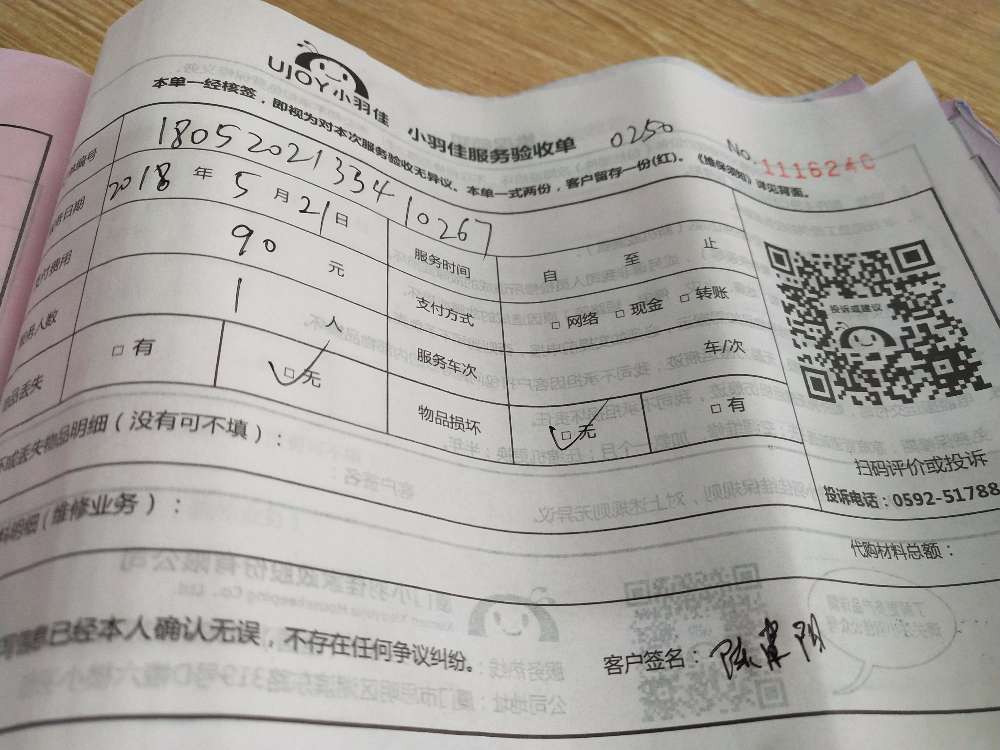 UJOY 小羽佳 小羽佳服务验收单 0250 No.
本单一经核签，即视为对本次服务验收无异议。本单一式两份，客户留存一份(红)。《维保须知》详见背面。
编号 1805202133410267
日期 2018 年 5 月 21 日 服务时间 自 至 止
支付费用 90 元 支付方式 □ 网络 □ 现金 □ 转账
服务人数 1 人 服务车次 车/次
物品丢失 □ 有 □ 无 物品损坏 □ 无 □ 有
投诉或建议
扫码评价或投诉
投诉电话：0592-51788
丢失物品明细（没有可不填）：
料明细（维修业务）： 代购材料总额：
信息已经本人确认无误，不存在任何争议纠纷。 客户签名：